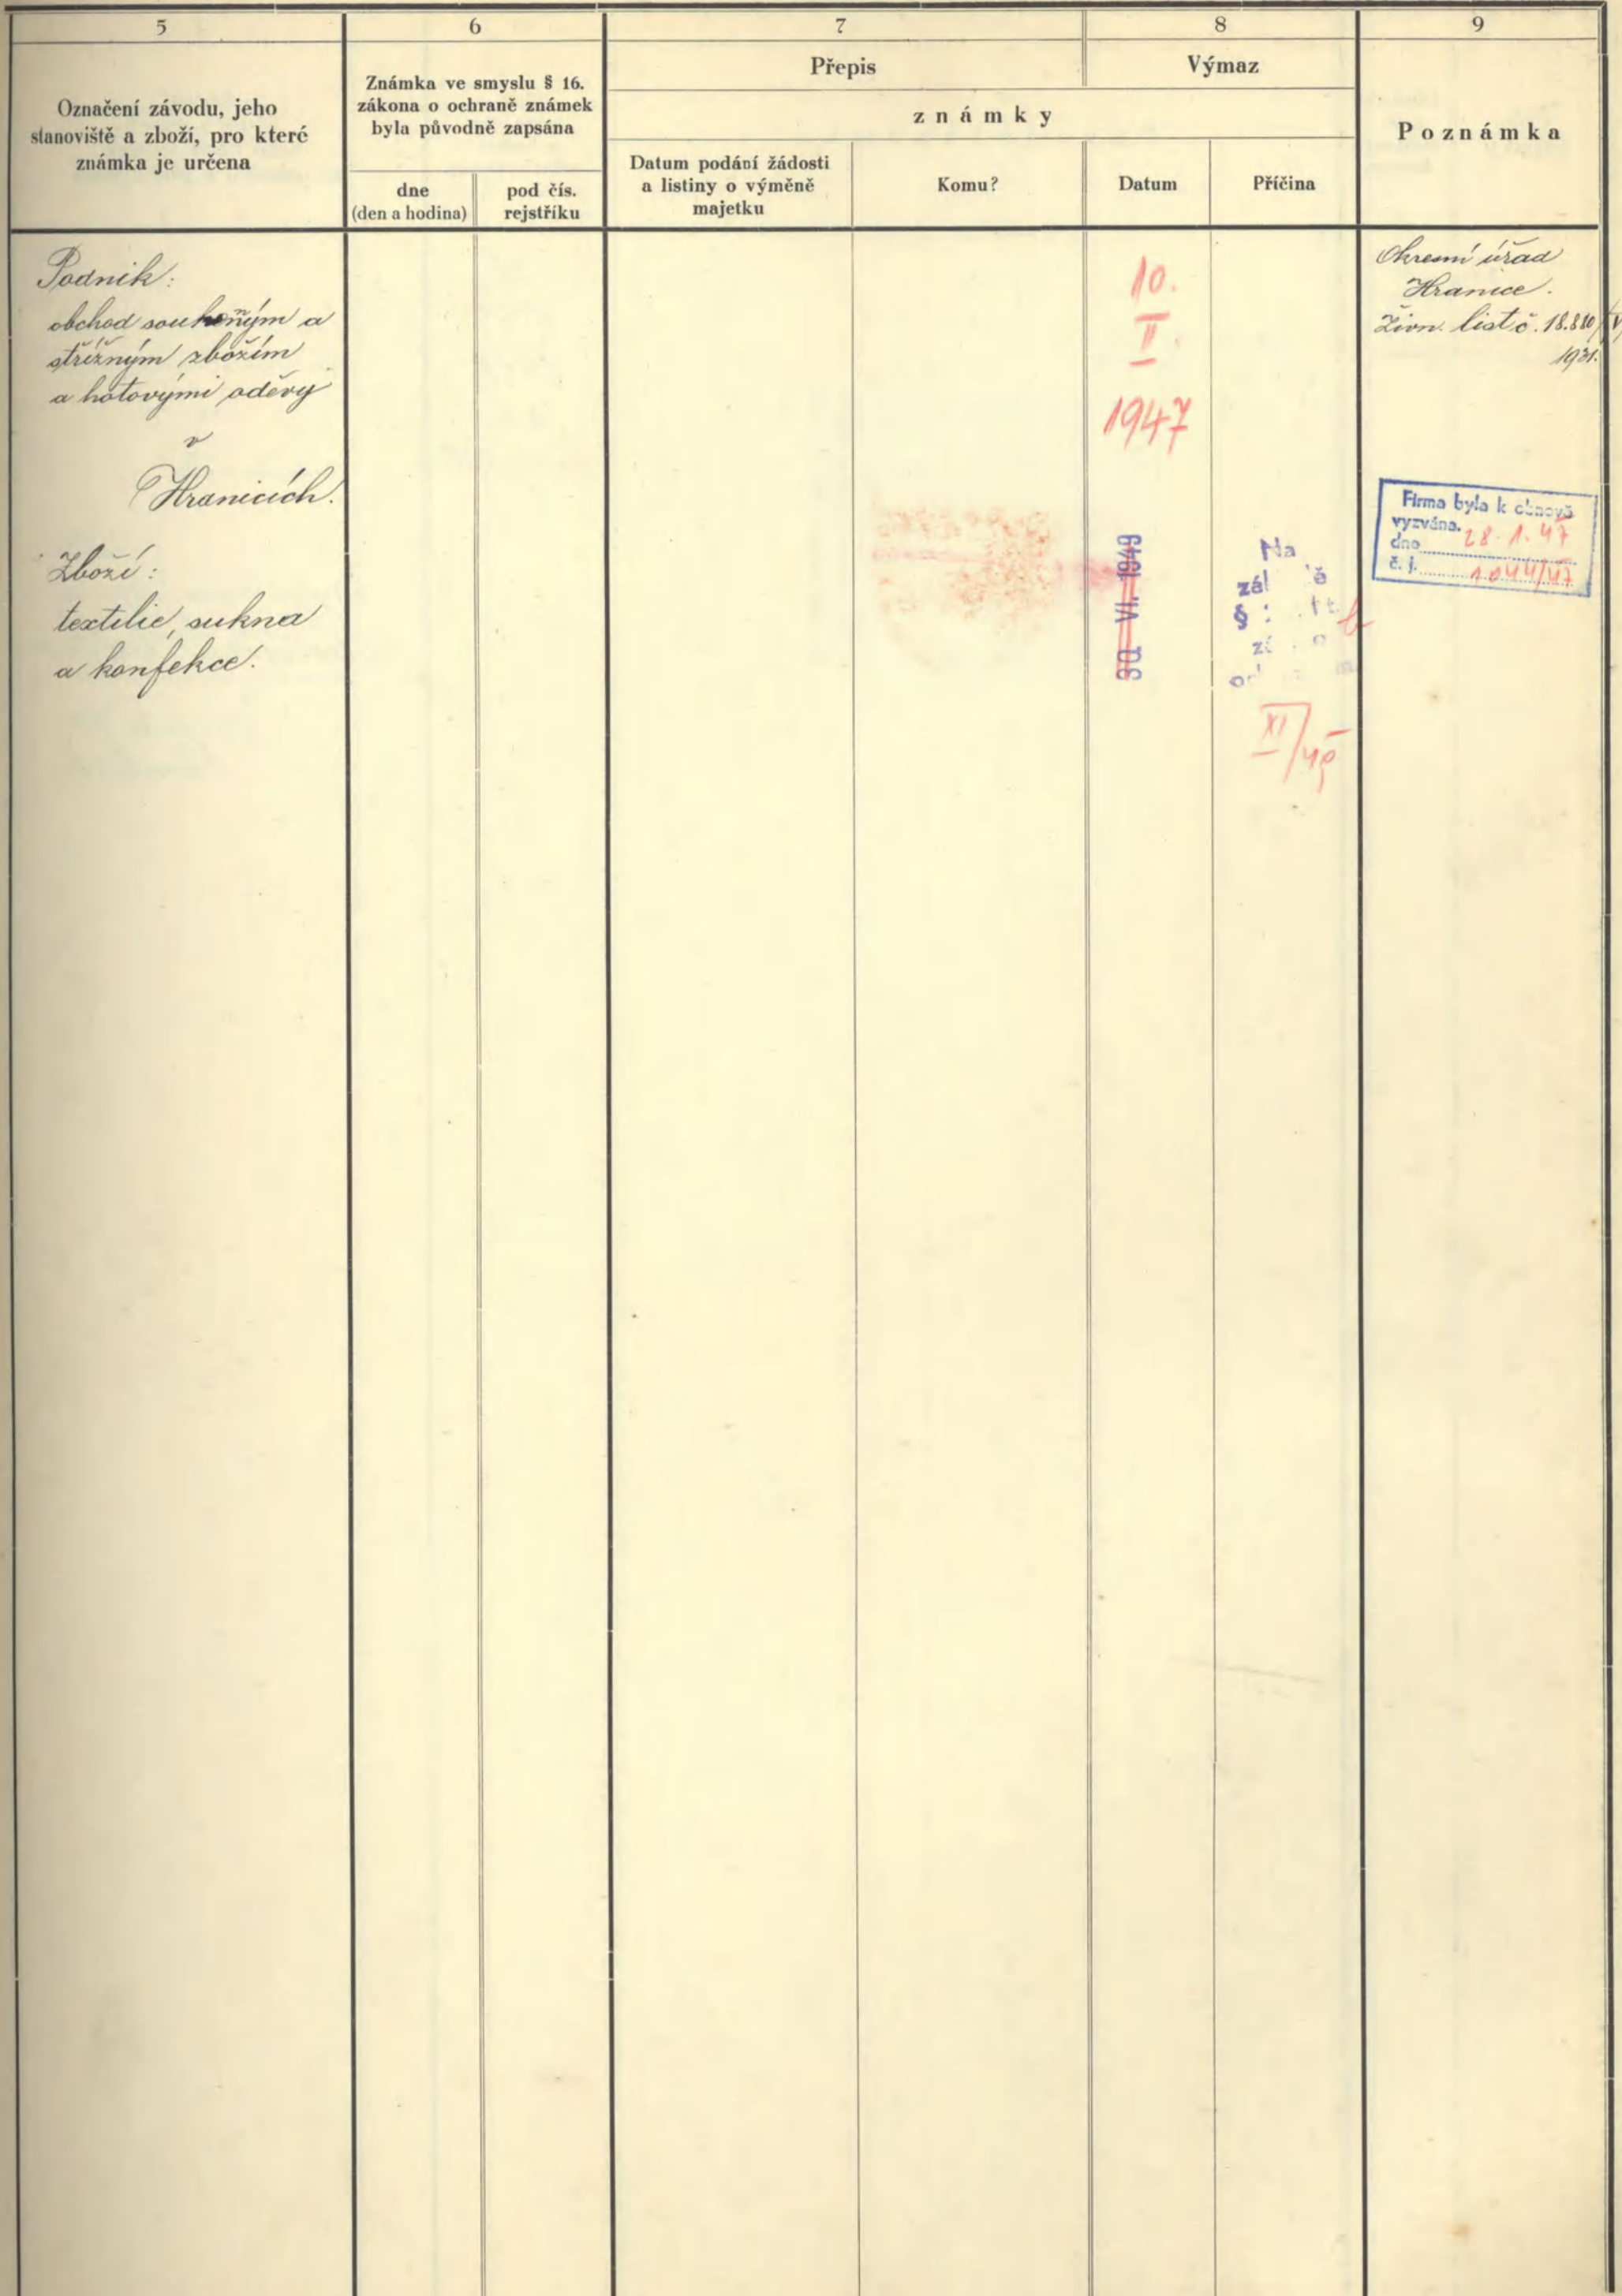 5
6
7
8
9
Označení závodu, jeho
stanoviště a zboží, pro které
známka je určena
Známka ve smyslu § 16.
zákona o ochraně známek
byla původně zapsána
dne
(den a hodina)
pod čís.
rejstříku
Přepis
Výmaz
známky
Datum podání žádosti
a listiny o výměně
majetku
Komu?
Datum
Příčina
Poznámka
Podnik:
obchod a
střižným zbožím
a hotovými oděvy
v
Hranicích.
Zboží:
textilie, sukna
a konfekce.
10.
II.
1947
30 VI. 1949
Na
zál
§
XI/
Okresní úřad
Hranice.
Živn. list č. 18.880/V
1931.
Firma byla k obnově
vyzvána.
dne 28. 1. 47
č. j. 1044/47